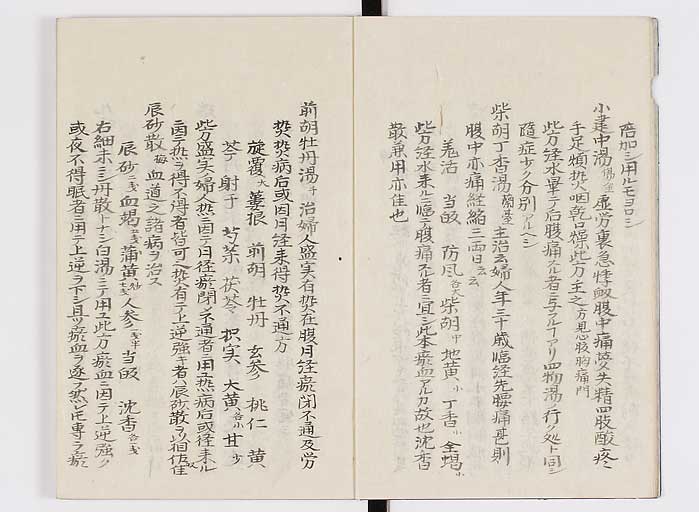 陪加シ用ルモヨロシ
小建中湯 虚労裏急悸衂腹中痛夢失精四肢酸疼
手足煩熱咽乾口燥此方主之 方見心胸痛門
此方経水畢テ后腹痛スル者ニ与フルコアリ四物湯ノ行ク処ト同シ
隨症少ク分別アルヘシ
柴胡丁香湯 蘭臺 主治云婦人年三十歳臨経先腰痛甚則
腹中亦痛経縮三両日云云
羌活 当皈 防風 各大 柴胡 中 地黄 小 丁香 小 全蝎 小
此方経水来ルニ臨テ腹痛スル者ニ宜シ此本瘀血アルカ故也沈香
散兼用亦佳也
前胡牡丹湯 千 治婦人盛実有熱在腹月経瘀閉不通及労
熱熱病后或因月経来得熱不通方
旋覆 大 蔞根 前胡 牡丹 玄参 桃仁 黄
芩 射干 芍薬 茯苓 枳実 大黄 各小 甘 少
此方盛実婦人熱ニ因テ月径瘀閉シ不通者ニ用ユ熱病后或径来ル
ニ因テ熱ヲ得不得者皆可之熱有テ上逆強キ者ハ辰砂散ヲ以相伍佳
辰砂散 梅 血道之諸病ヲ治ス
辰砂 二戔 血蝎 蒲黄 人参 当皈 沈香 各戔
右細末ニシ丹散トナシ白湯ニテ用ユ此方瘀血ニ因テ上逆強ク
或夜不得眠者ニ用テ上逆ヲ下シ且ツ瘀血ヲ逐フ然レモ専ラ瘀